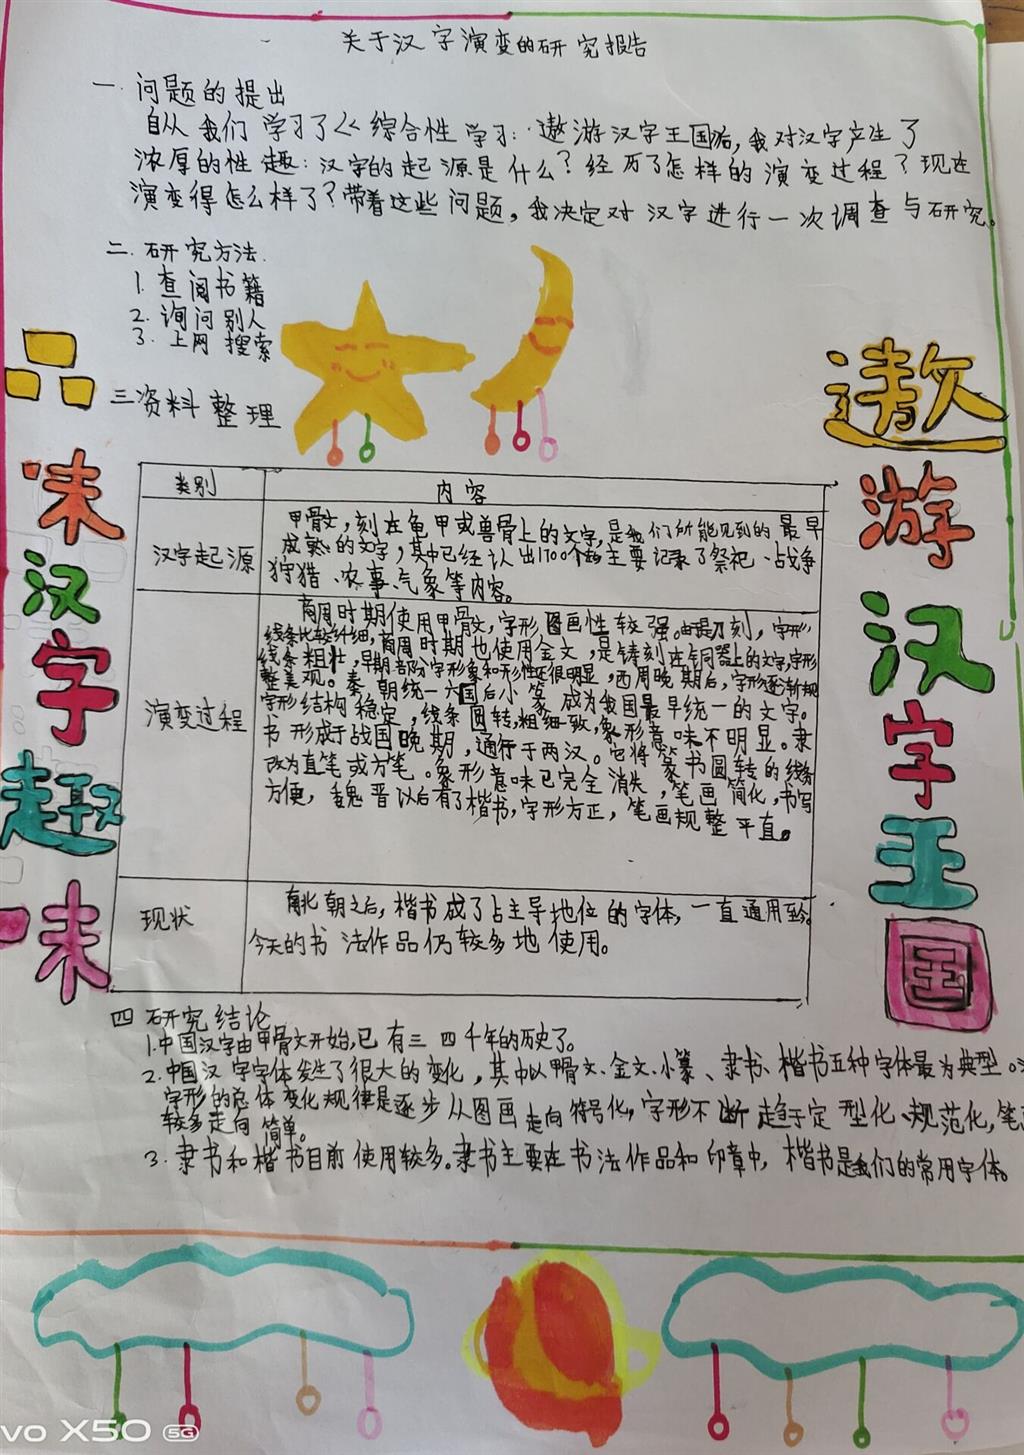 关于汉字演变的研究报告
一.问题的提出
自从我们学习了《综合性学习:遨游汉字王国后,我对汉字产生了
浓厚的性趣:汉字的起源是什么?经历了怎样的演变过程?现在
演变得怎么样了?带着这些问题,我决定对汉字进行一次调查与研究。
二.研究方法.
1.查阅书籍
2.询问别人
3.上网搜索
三资料整理
品味汉字趣味
遨游汉字王国
类别 内容
汉字起源
甲骨文,刻在龟甲或兽骨上的文字,是我们所能见到的最早
成熟的文字,其中已经认出1700个 主要记录了祭祀、占战争
狩猎、农事、气象等内容。
演变过程
商周时期使用甲骨文,字形图画性较强。由是刀刻,字形
线条比较纤细,商周时期也使用金文,是铸刻在铜器上的文字,字形
线条粗壮,早期部分字形象和形性还很明显,西周晚期后,字形逐渐规
整美观。秦朝统一六国后小篆成为我国最早统一的文字。
字形结构稳定,线条圆转,粗细一致,象形意味不明显。隶
书形成于战国晚期,通行于两汉。它将篆书圆转的线条
改为直笔或方笔。象形意味已完全消失,笔画简化,书写
方便,魏晋以后有了楷书,字形方正,笔画规整平直。
现状
南北朝之后,楷书成了占主导地位的字体,一直通用至今。
今天的书法作品仍较多地使用。
四研究结论
1.中国汉字由甲骨文开始,已有三四千年的历史了。
2.中国汉字字体发生了很大的变化,其中以甲骨文、金文、小篆、隶书、楷书五种字体最为典型。
字形的总体变化规律是逐步从图画走向符号化,字形不断趋于定型化、规范化,
较多走向简单。
3.隶书和楷书目前使用较多。隶书主要在书法作品和印章中,楷书是我们的常用字体。
vo X50 5G